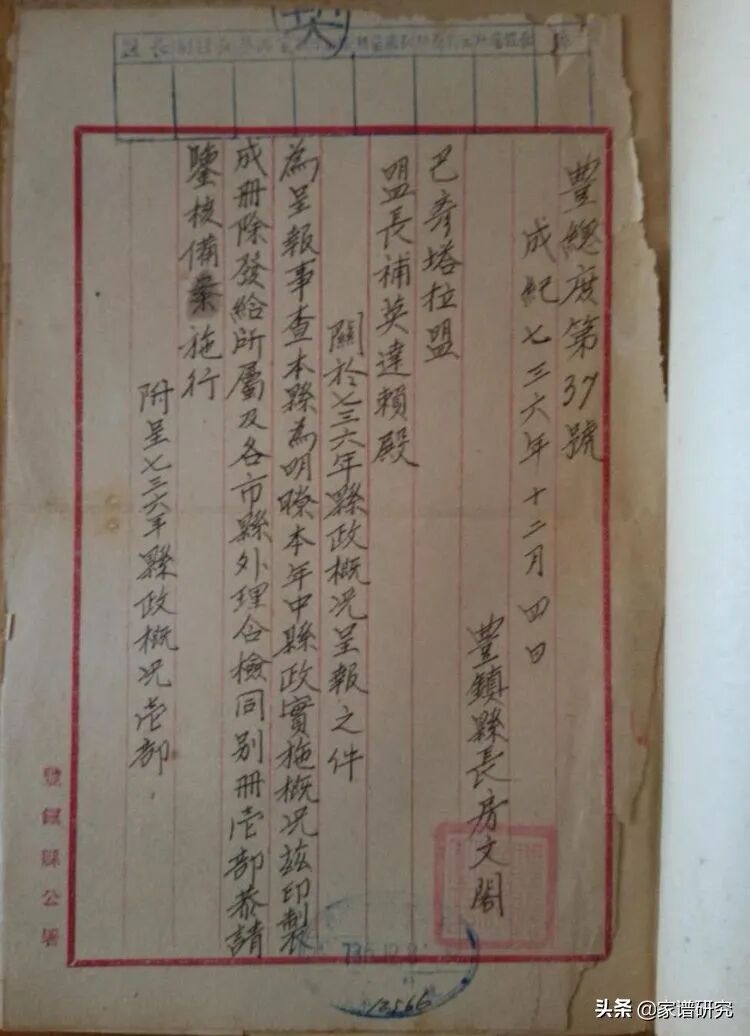 豊總庶第37號
成紀七三六年十二月四日
豊鎮縣長房文閣
巴彥塔拉盟
盟長補英達賴殿
關於七三六年縣政概況呈報之件
為呈報事查本縣為明瞭本年中縣政實施概況茲印製
成冊除發給所屬及各市縣外理合檢同別冊壱部恭請
鑒核備案施行
附呈七三六年縣政概況壱部.
豐鎮縣公署
736.12.8
12566
头条 @家谱研究